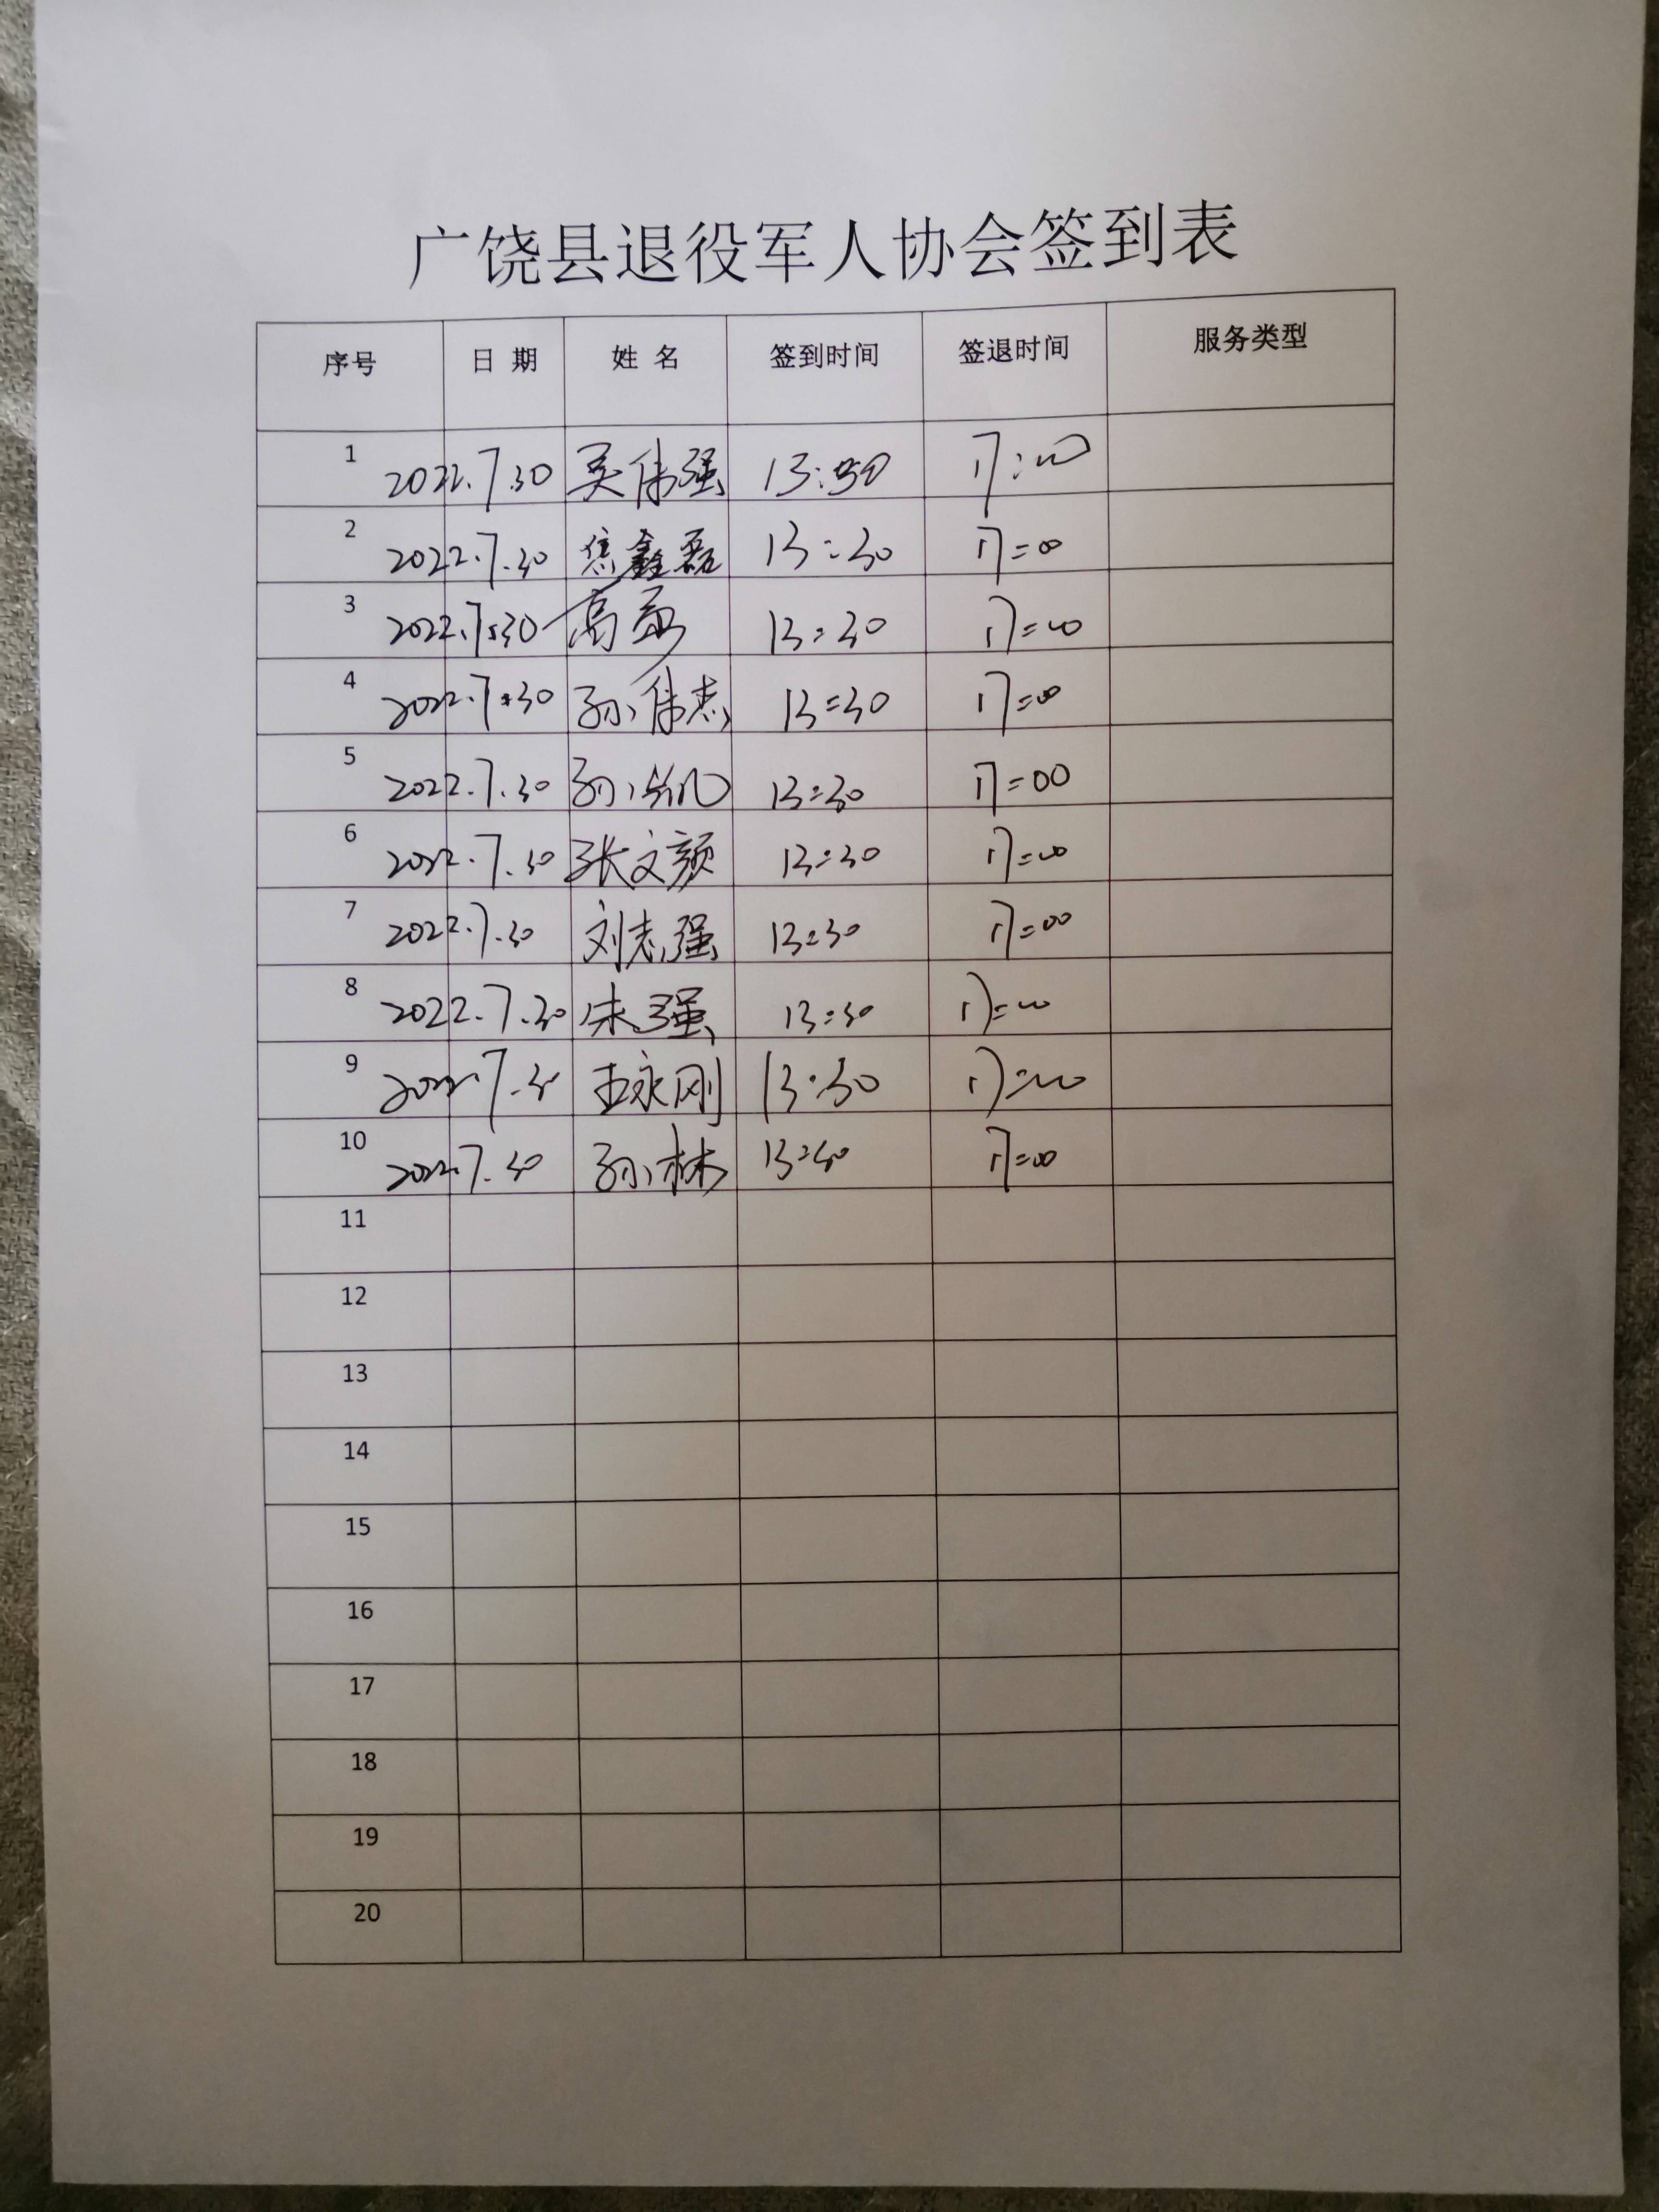 广饶县退役军人协会签到表
序号 日 期 姓 名 签到时间 签退时间 服务类型
1 2022.7.30 吴伟强 13:30 17:00
2 2022.7.30 焦鑫磊 13:30 17:00
3 2022.7.30 高 13:30 17:00
4 2022.7.30 孙伟志 13:30 17:00
5 2022.7.30 孙 13:30 17:00
6 2022.7.30 张文颜 13:30 17:00
7 2022.7.30 刘志强 13:30 17:00
8 2022.7.30 朱强 13:30 17:00
9 2022.7.30 王永刚 13:30 17:00
10 2022.7.30 孙林 13:30 17:00
11
12
13
14
15
16
17
18
19
20